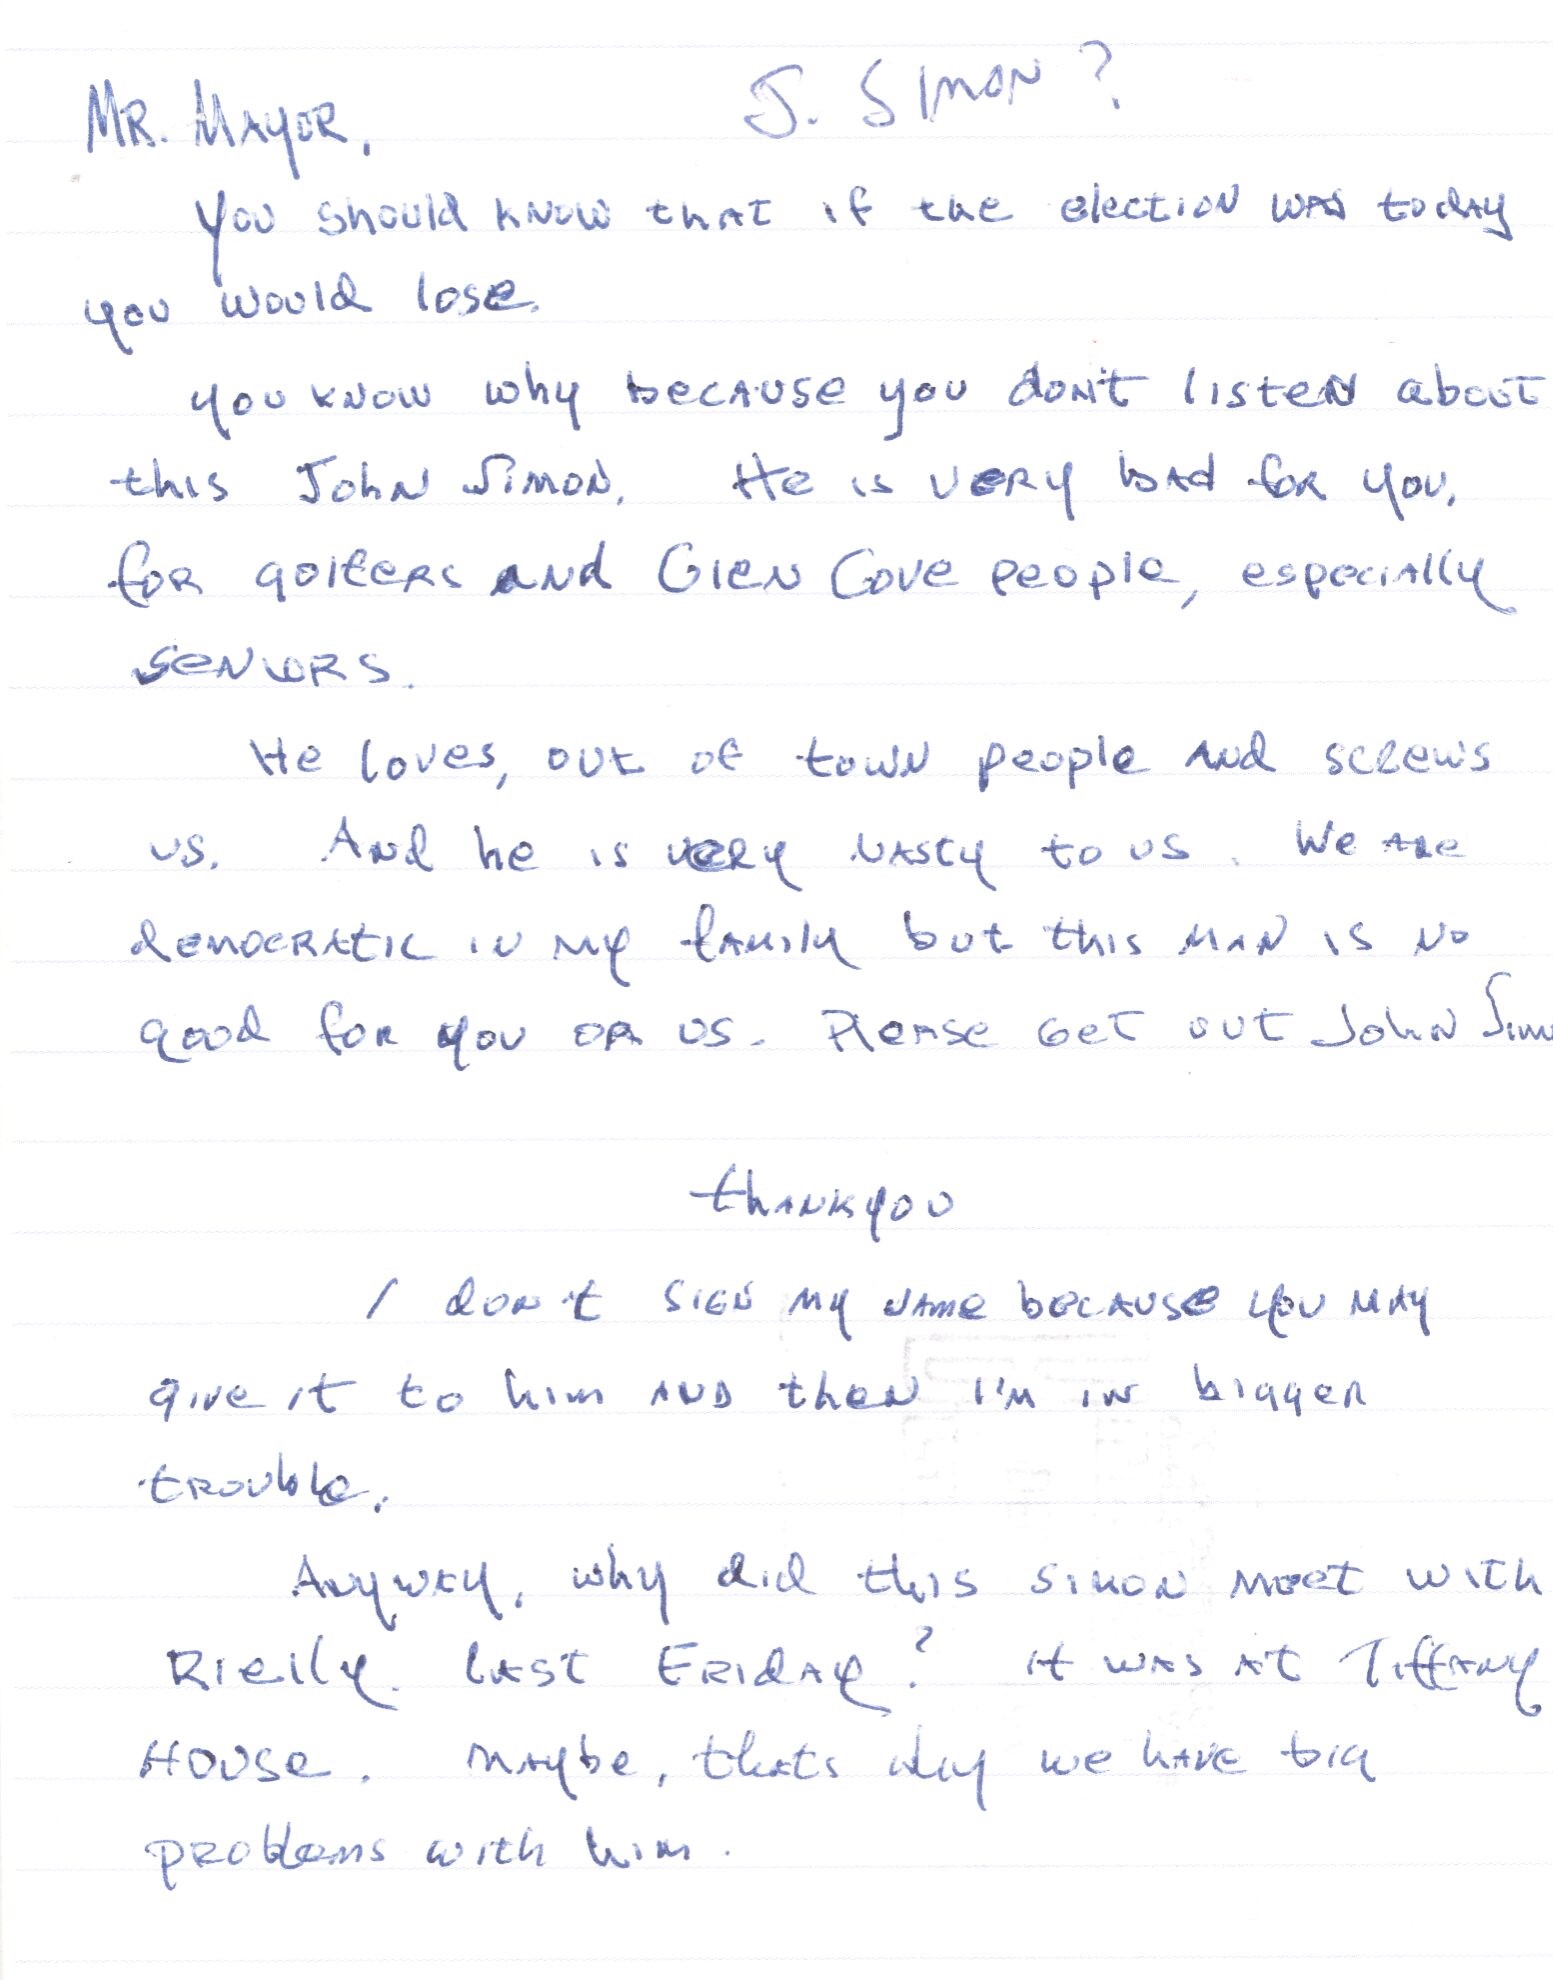 J. Simon?
Mr. Mayor,
You should know that if the election was today
you would lose.
you know why because you don't listen about
this John Simon. He is very bad for you,
for golfers and Glen Cove people, especially
seniors.
He loves, out of town people and screws
us. And he is very nasty to us. We are
democratic in my family but this man is no
good for you or us. Please Get out John Sim
thankyou
I don't sign my name because you may
give it to him and then I'm in bigger
trouble.
Anyway, why did this simon meet with
Rielly last Friday? it was at Tiffany
House. Maybe, thats why we have big
problems with him.